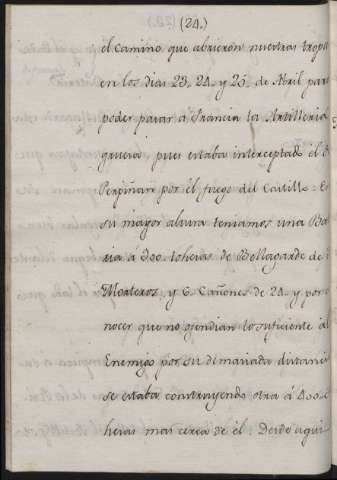 (24.)
el camino que abrieron nuestras tropas
en los dias 23, 24, y 25, de Abril para
poder pasar a Francia la Artilleria
gruesa, pues estaba interceptado el
Perpiñan por el fuego del Castillo: En
su mayor altura teniamos una Ba-
ria á 900. tohesas de Bellagarde de
Morteros, y 6. Cañones de 24. y por
nocer que no ofendian lo suficiente á
Enemigo por su demasiada distancia
se estaba construyendo otra á 400.
hesas mas cerca de él: Desde aqui